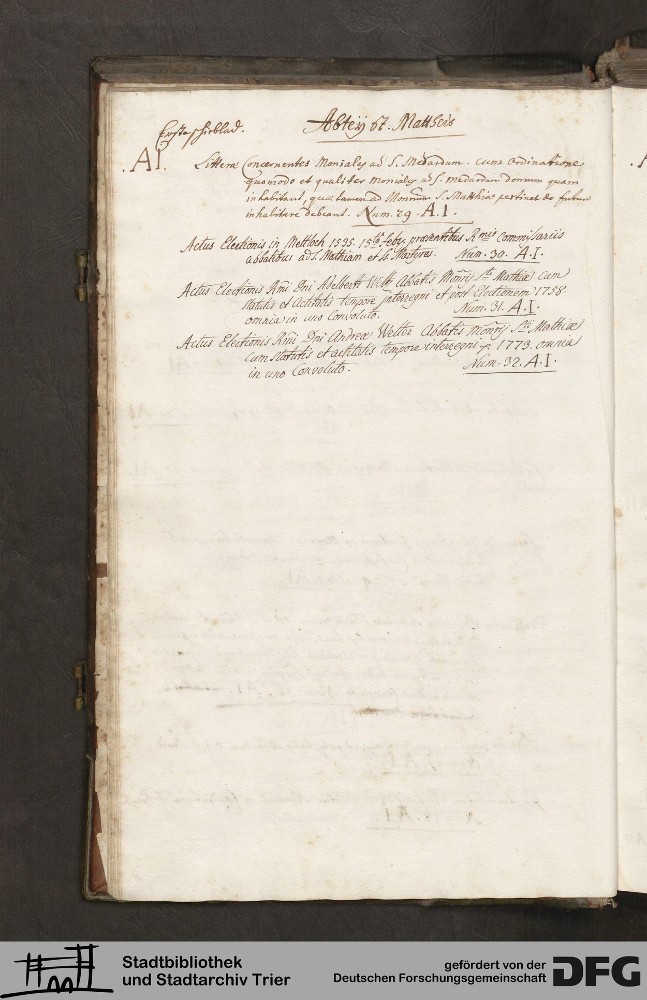 Abteÿ St. Mattheis
Erste schieblad.
.AI. Litteræ Concernentes Moniales ad S. Medardum. cum Ordinatione
quomodo et qualiter moniales ad S. medardum domum quam
inhabitant, quæ tamen ad Monrium S. Matthiæ pertinet de futuro
inhabitare debeant. Num. 29. A.I.
Actus Electionis in Mettloch 1535. 15ta febr. præsentibus Rmis Commissariis
abbatibus ad S. Mathiam et SS. Martyres. Num. 30. A.I.
Actus Electionis Rmi Dni Adelberti Wiltz Abbatis Monrij Sti Mathiæ cum
statutis et actitatis tempore interregni et post Electionem 1758
omnia in uno Convoluto. Num. 31. A.I.
Actus Electionis Rmi Dni Andreæ Welter Abbatis monrij Sti Mathiæ
cum statutis et actitatis tempore interregni 1773 omnia
in uno Convoluto. Num. 32. A.I.
Stadtbibliothek
und Stadtarchiv Trier
gefördert von der
Deutschen Forschungsgemeinschaft
DFG